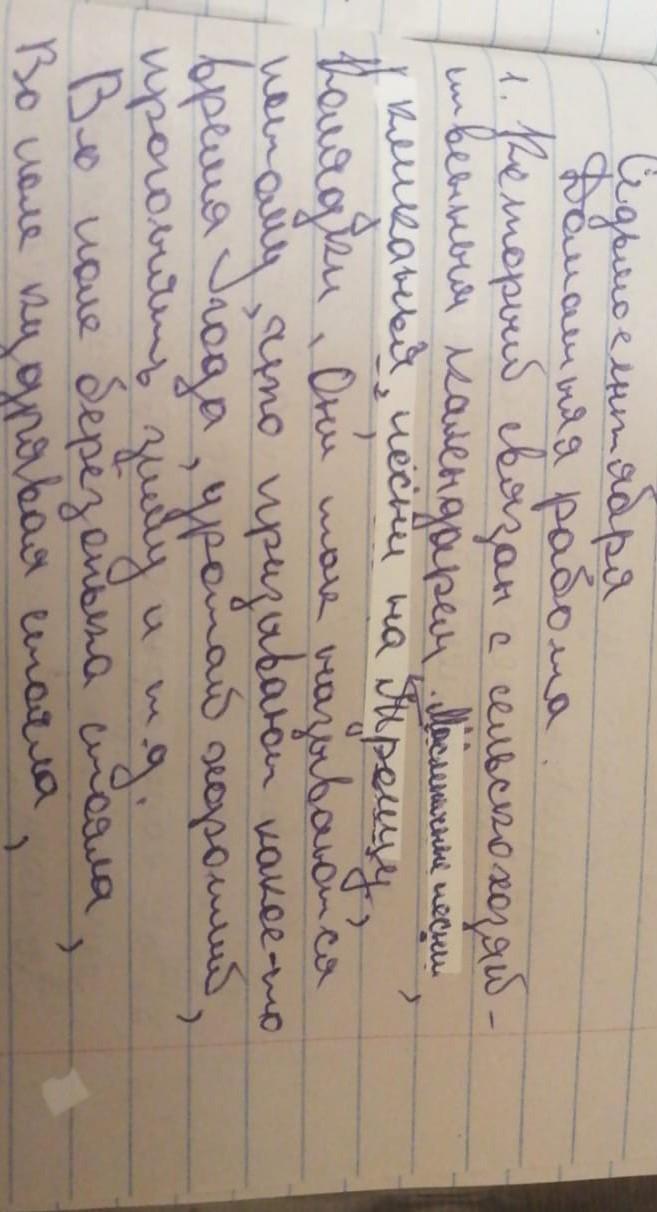 Седьмое сентября
Домашняя работа.
1. Который связан с сельскохозяй-
ственным календарем. Масленичные песни
кликанья, песни на Троицу,
Колядки. Они так называются
потому, что призывают какое-то
время года, урожай хороший,
прогонять зиму и т.д.
Во поле берёзонька стояла,
Во поле кудрявая стояла,